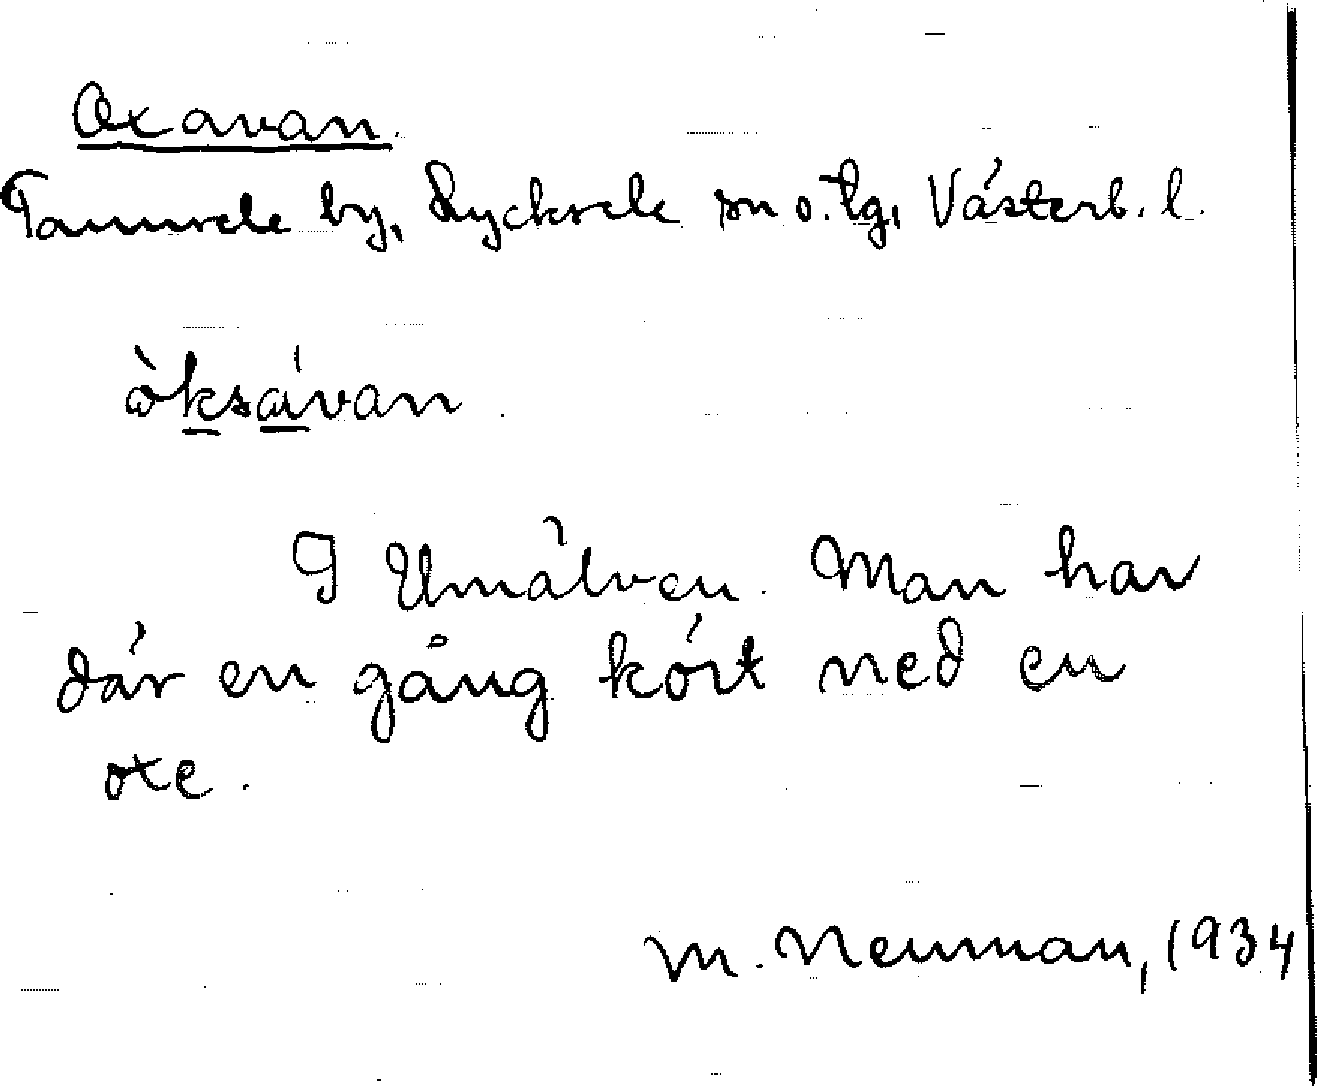 Oxavan.
Tannsele by, Lycksele sn o. lg, Västerb. l.
òksávan.
I Umälven. Man har
där en gång kört ned en
oxe.
M. Neuman, 1934